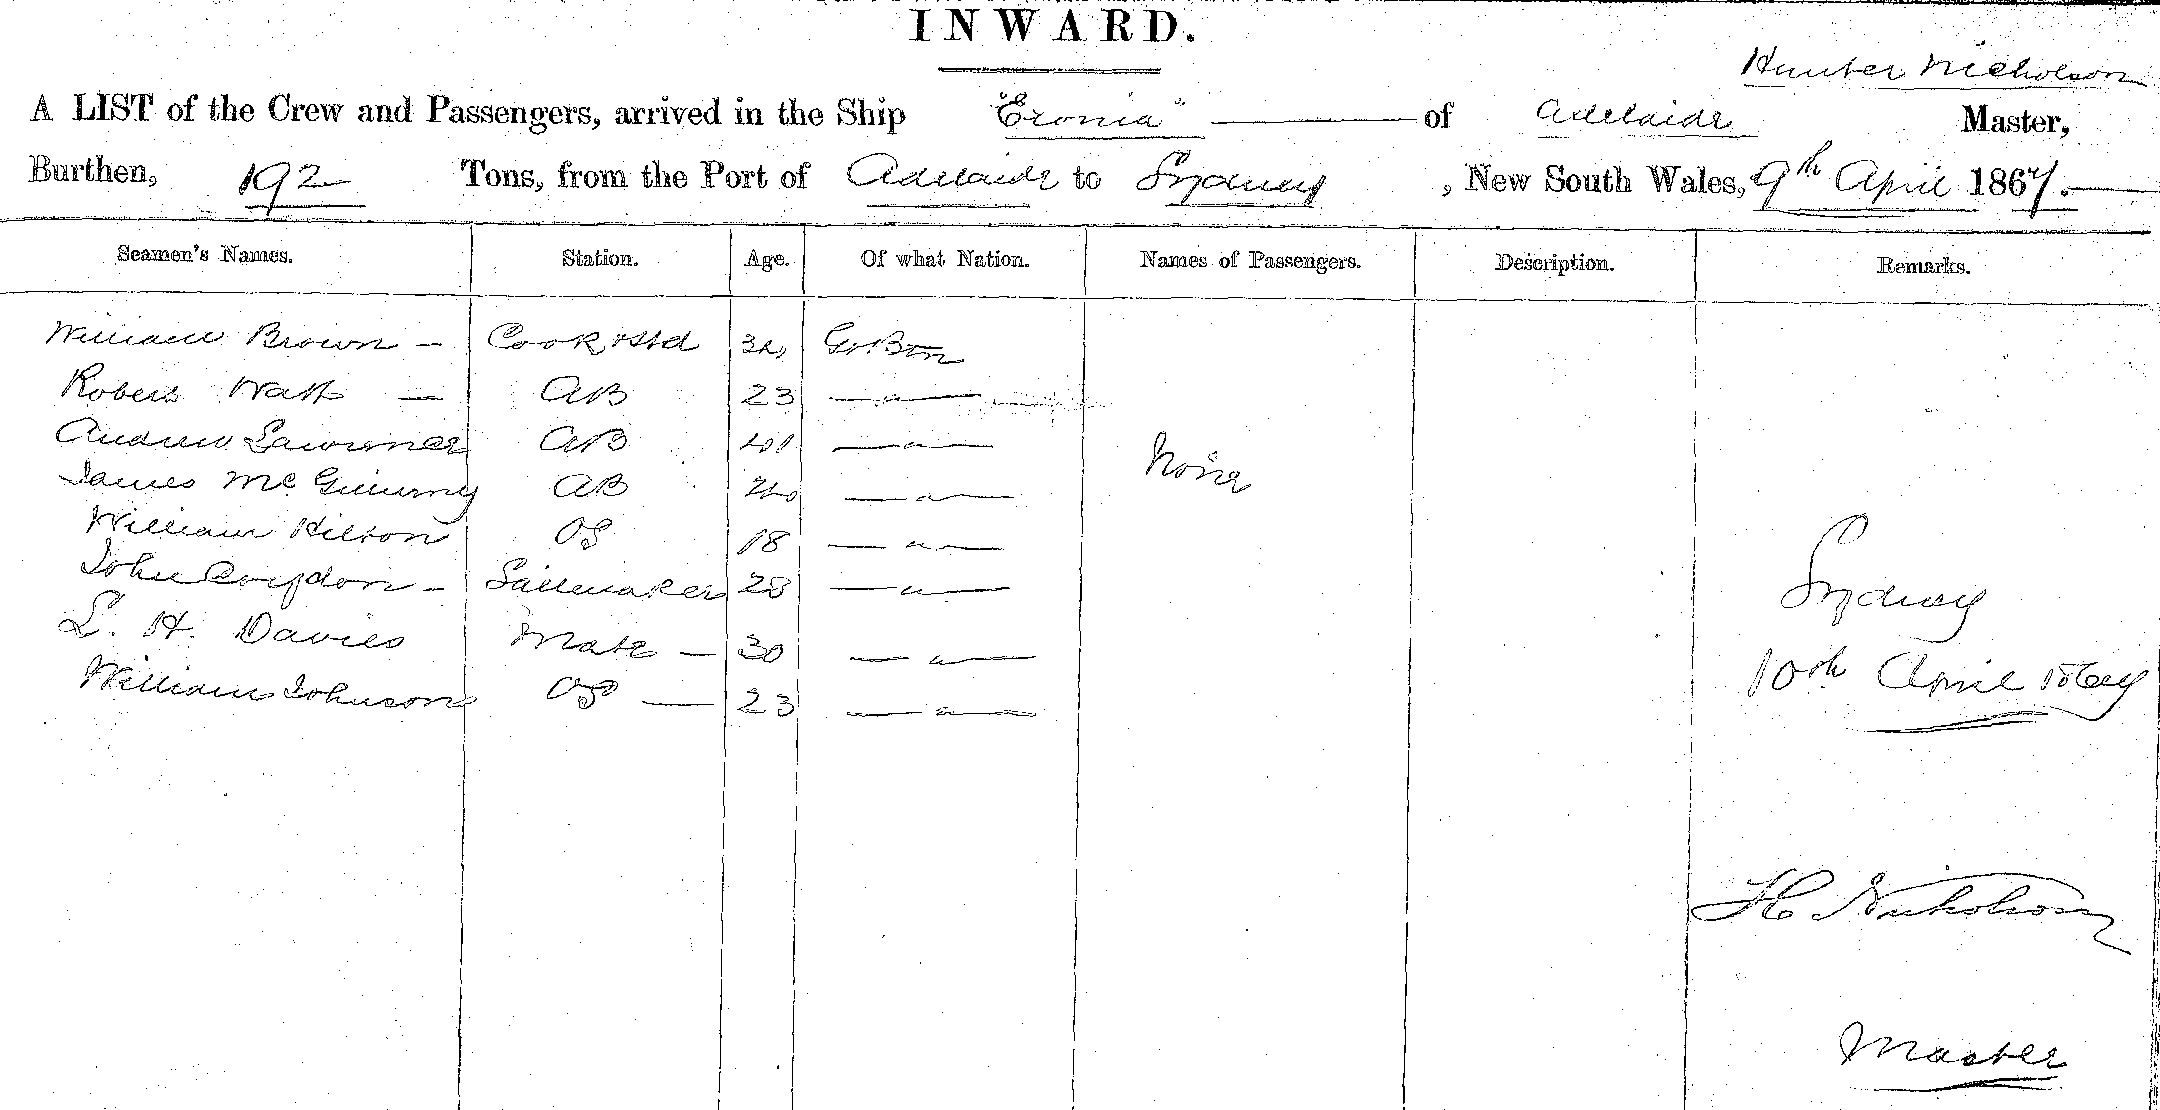 INWARD.
Hunter Nicholson
A LIST of the Crew and Passengers, arrived in the Ship "Eronia" of Adelaide Master,
Burthen, 192 Tons, from the Port of Adelaide to Sydney, New South Wales, 9th April 1867.
Seamen's Names. Station. Age. Of what Nation. Names of Passengers. Description. Remarks.
William Brown — Cook & Std Gr. Btn
Robert Watt — AB 23 — " —
Andrew Lawrence AB — " —
James Mc AB — " —
None
William Hilton OS 18 — " —
John Corydon — Sailmaker 28 — " —
Sydney
L. H. Davies Mate — 30 — " —
William Johnson OS — 23 — " —
10th April 1867
H Nicholson
Master